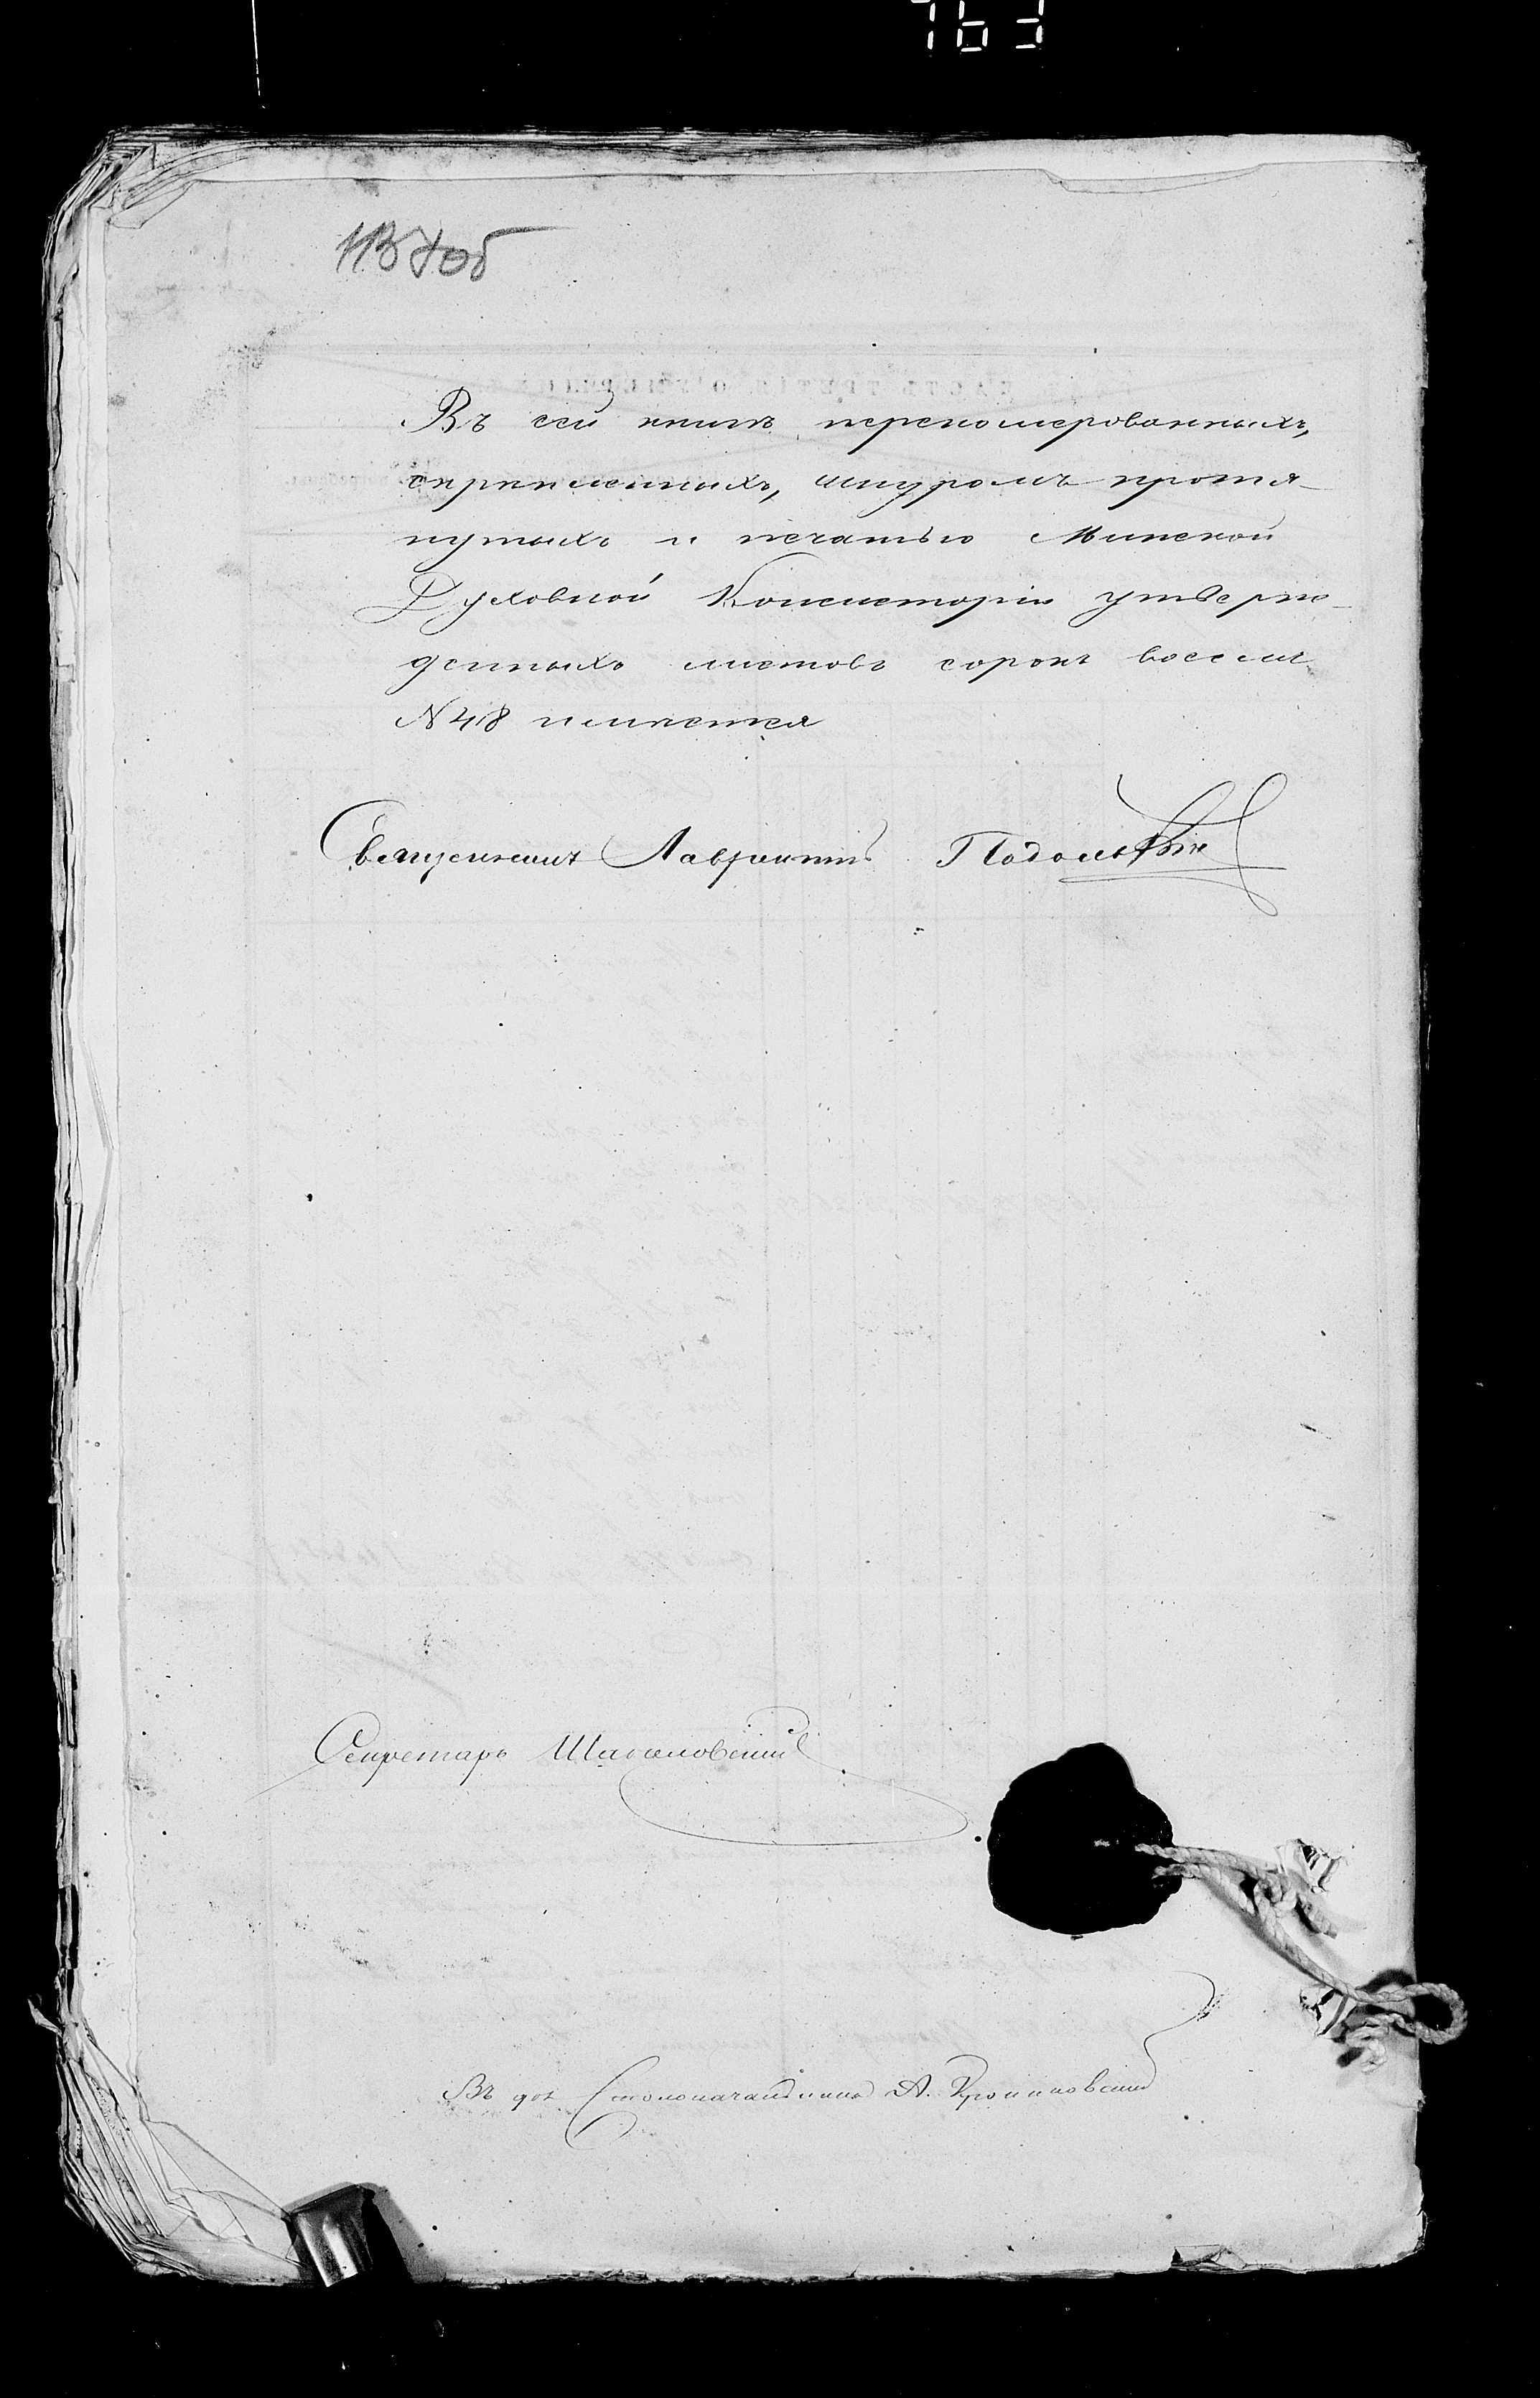 Въ сей книгѣ перенумерованныхъ,
скрѣпленныхъ, шнуромъ протя-
нутыхъ и печатью Минской
Духовной Консисторіи утверж-
денныхъ листовъ сорокъ восемь
№ 48 имѣется
Священникъ Лаврентій Подольскій
Секретарь
Въ дол. Столоначальника А.